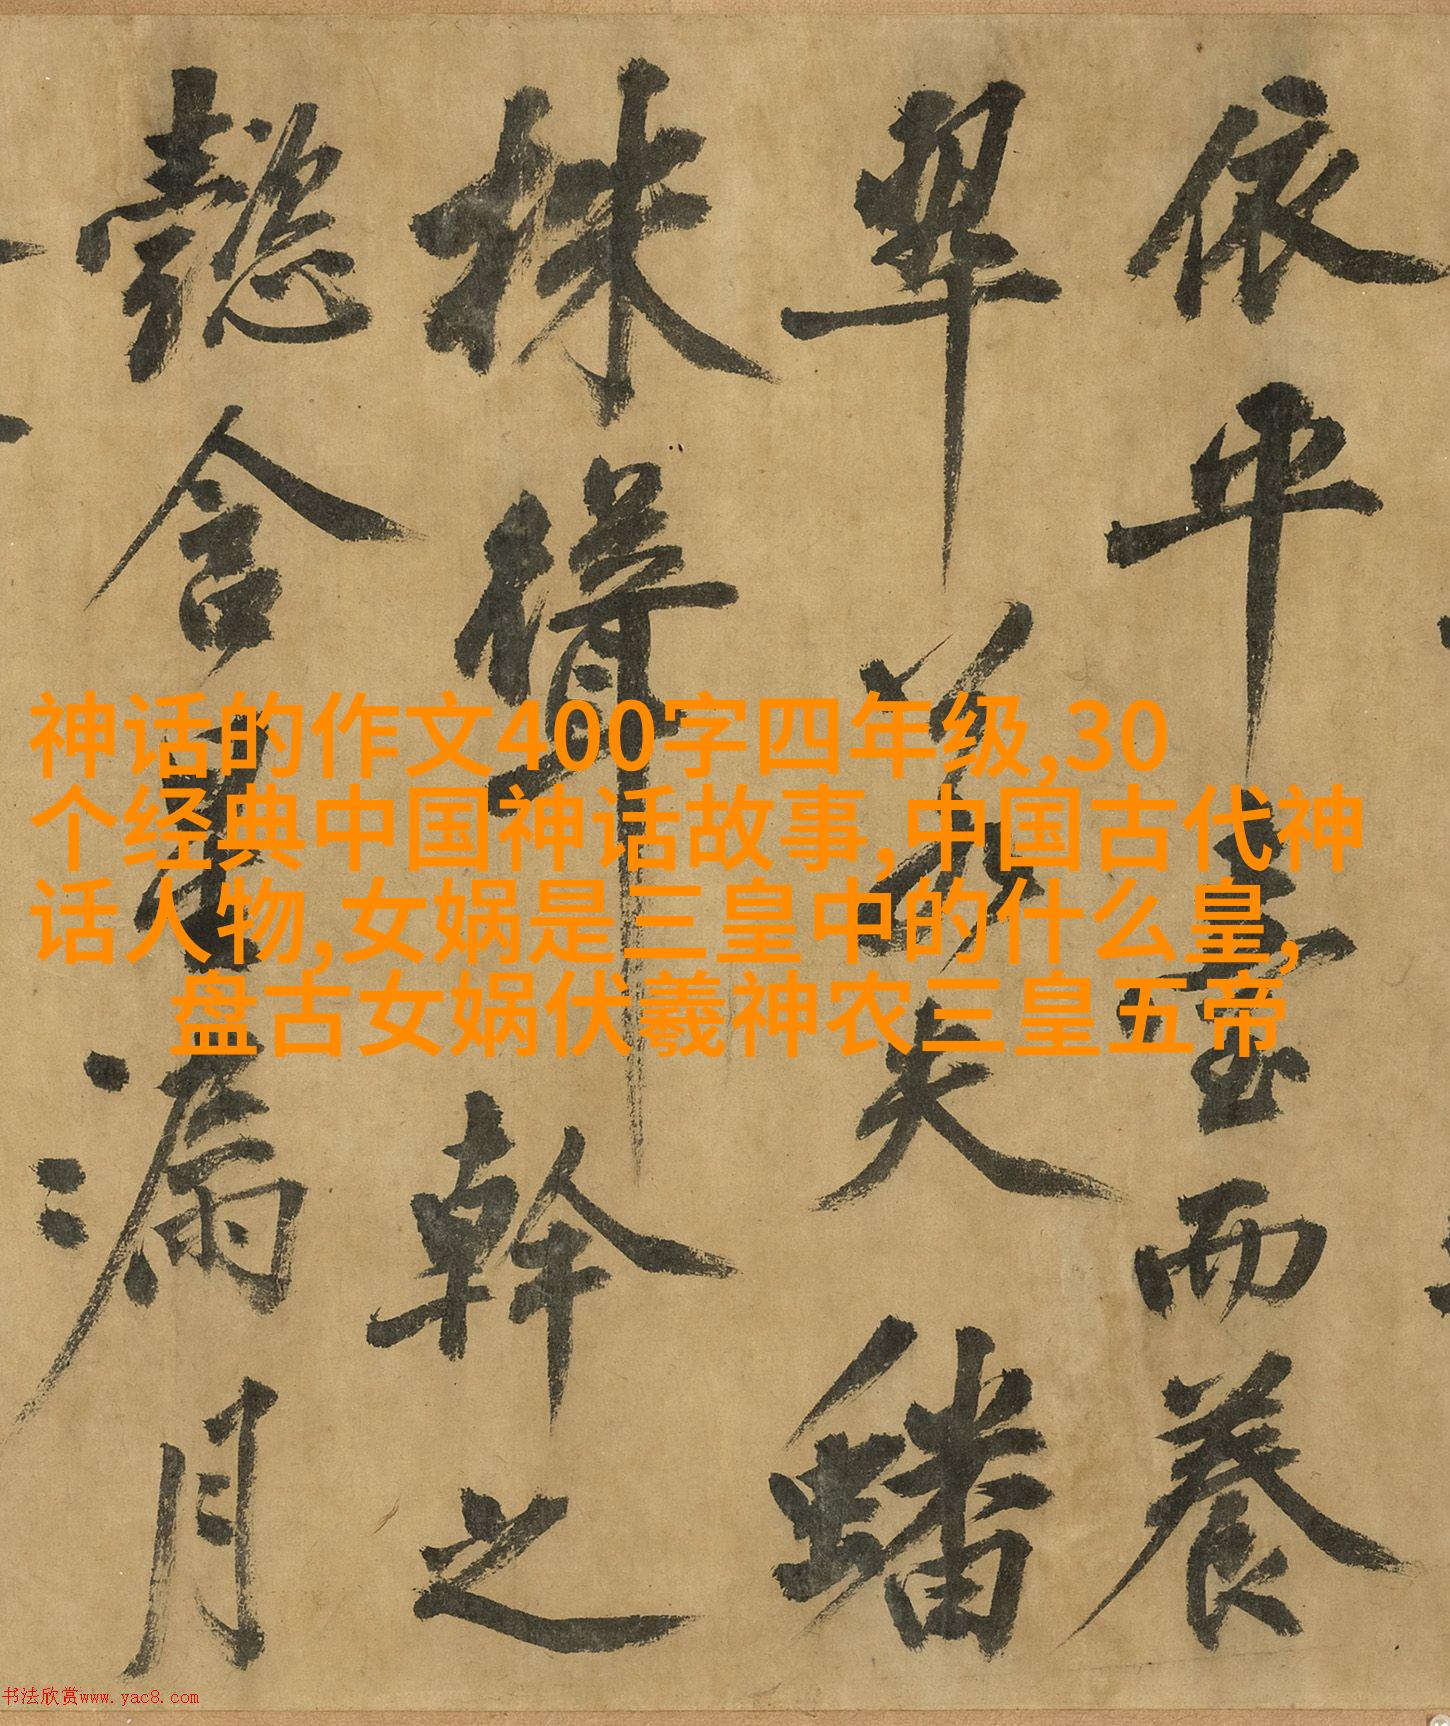 依平臺而養
翠若夫蟠
株幹之
懿含星漏月
神话的作文400字四年级,30
个经典中国神话故事,中国古代神
话人物,女娲是三皇中的什么皇,
盘古女娲伏羲神农三皇五帝
书法欣赏www.yac8.com